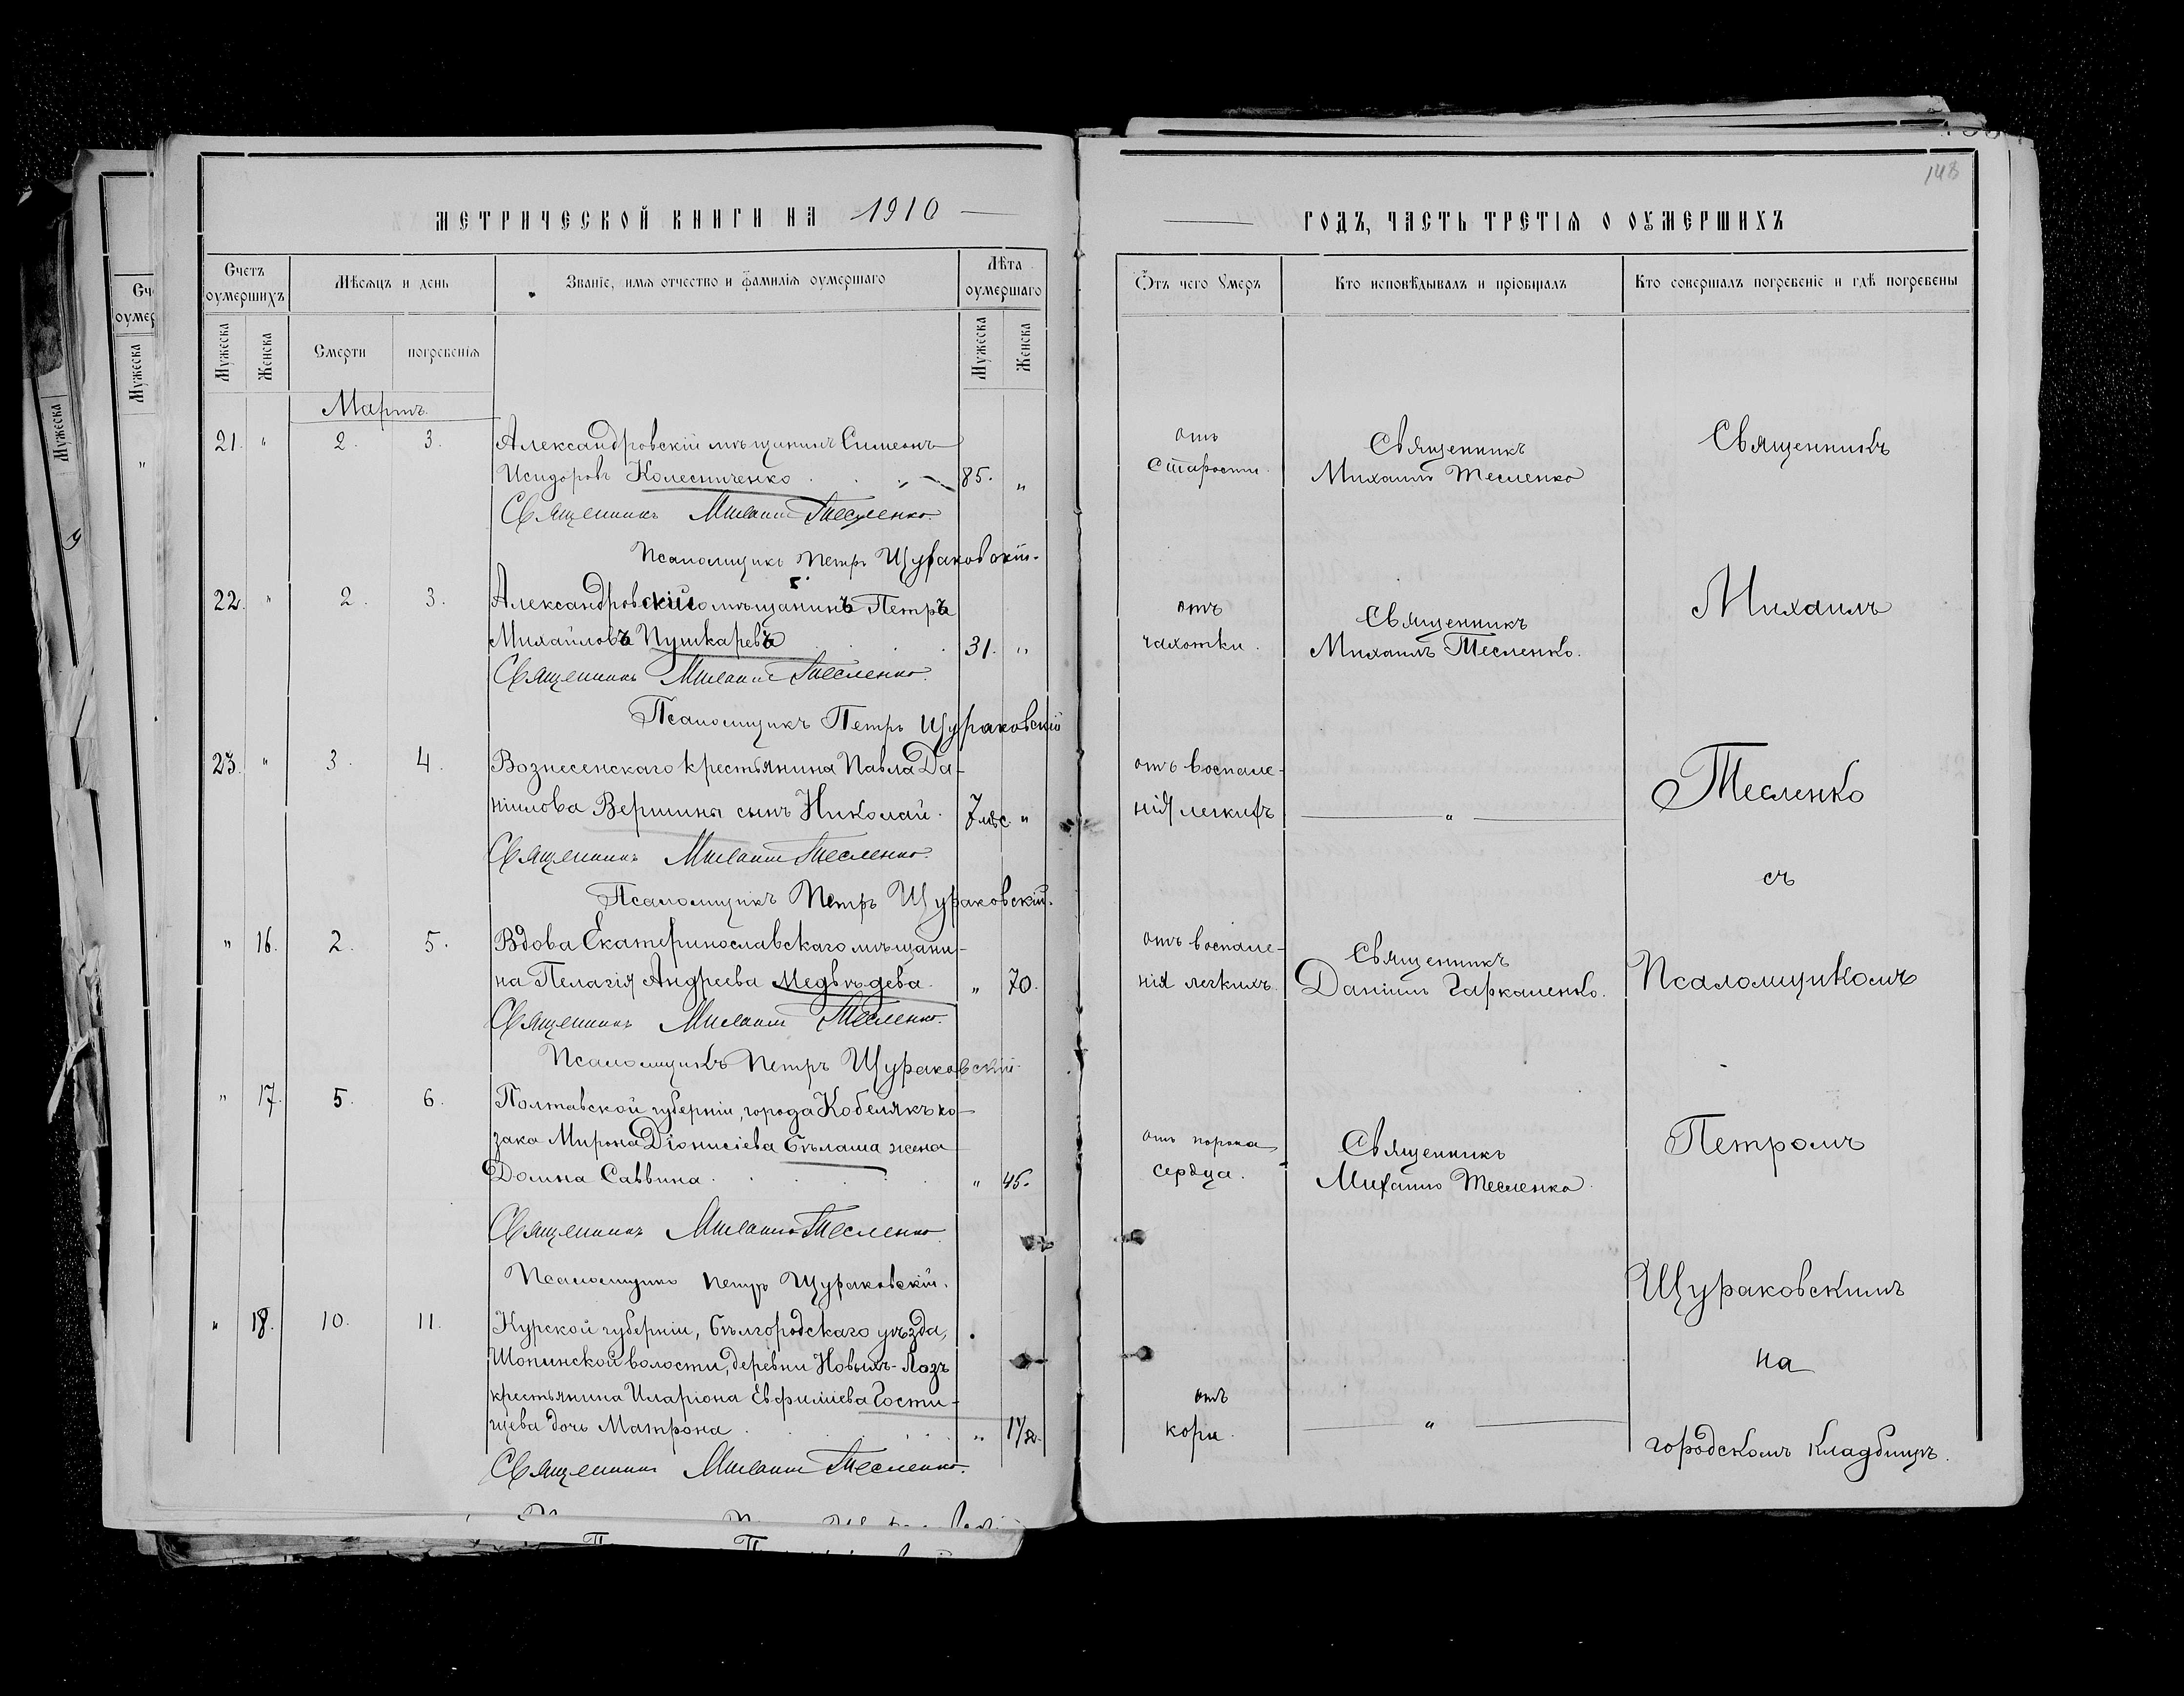 МЕТРИЧЕСКОЙ КНИГИ НА 1910
Счетъ оумершихъ
Мѣсяцъ и день
Званіе, имя отчество и фамилія оумершаго
Лѣта оумершаго
Мужеска
Женска
Смерти
погребенія
Мужеска
Женска
Мартъ.
21. " 2. 3. Александровскій мѣщанинъ Симеонъ
Исидоровъ Колесниченко 85. "
Священникъ Михаилъ Тесленко.
Псаломщикъ Петръ Щураковскій.
22. " 2. 3. Александровскій мѣщанинъ Петръ
Михайловъ Пушкаревъ 31. "
Священникъ Михаилъ Тесленко.
Псаломщикъ Петръ Щураковскій
23. " 3. 4. Вознесенскаго крестьянина Павла Да-
ніилова Вершины сынъ Николай. 7 мѣс. "
Священникъ Михаилъ Тесленко.
Псаломщикъ Петръ Щураковскій.
" 16. 2. 5. Вдова Екатеринославскаго мѣщани-
на Пелагія Андреева Медвѣдева. " 70.
Священникъ Михаилъ Тесленко.
Псаломщикъ Петръ Щураковскій
" 17. 5. 6. Полтавской губерніи, города Кобелякъ ко-
зака Мирона Діонисіева Бѣлаша жена
Домна Саввина. " 45.
Священникъ Михаилъ Тесленко
Псаломщикъ Петръ Щураковскій.
" 18. 10. 11. Курской губерніи, Бѣлгородскаго уѣзда,
Шопинской волости, деревни Новыхъ-Лозъ
крестьянина Иларіона Евфиміева Гости-
щева дочь Матрона "
Священникъ Михаилъ Тесленко.
148
ГОДЪ, ЧАСТЬ ТРЕТІЯ О ОУМЕРШИХЪ
Отъ чего Умеръ
Кто исповѣдывалъ и пріобщалъ
Кто совершалъ погребеніе и гдѣ погребены
отъ
старости.
Священникъ
Михаилъ Тесленко
отъ
чахотки.
Священникъ
Михаилъ Тесленко.
отъ воспале-
нія легкихъ
"
отъ воспале-
нія легкихъ.
Священникъ
Даніилъ Гаркаленко.
отъ порока
сердца.
Священникъ
Михаилъ Тесленко.
отъ
кори.
"
Священникъ
Михаилъ
Тесленко
съ
Псаломщикомъ
Петромъ
Щураковскимъ
на
городскомъ кладбищѣ.